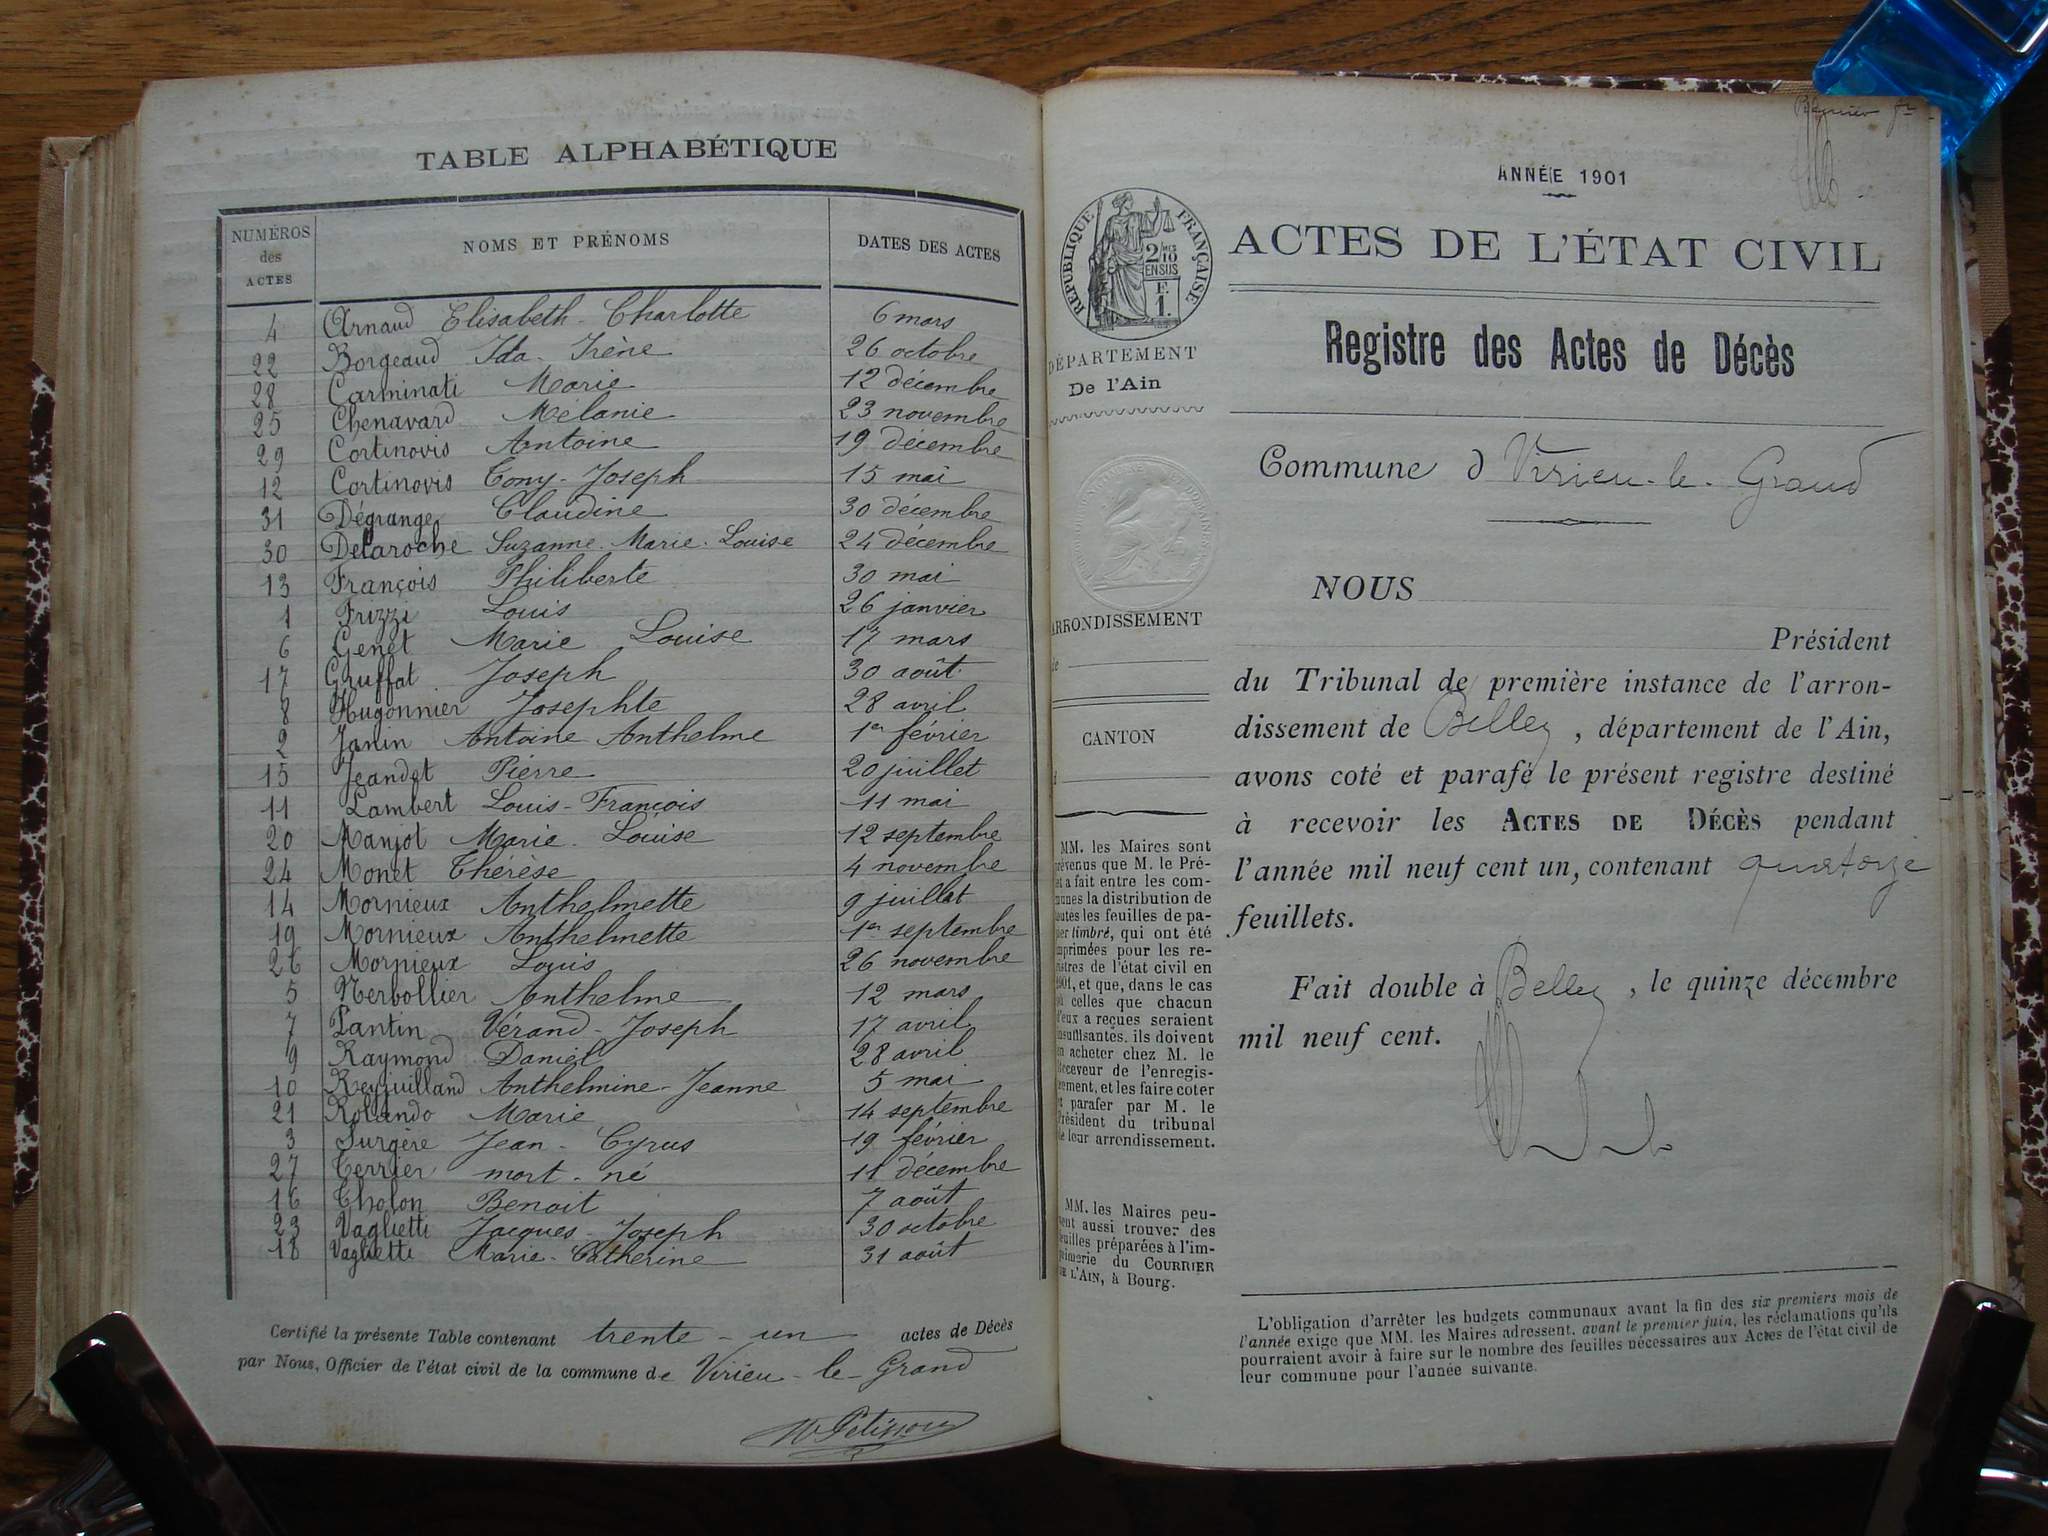 TABLE ALPHABÉTIQUE
NUMÉROS des ACTES NOMS ET PRÉNOMS DATES DES ACTES
4 Arnaud Elisabeth-Charlotte 6 mars
22 Borgeaud Ida-Irène 26 octobre
28 Carminati Marie 12 décembre
25 Chenavard Mélanie 23 novembre
29 Cortinovis Antoine 19 décembre
12 Cortinovis Tony-Joseph 15 mai
31 Dégrange Claudine 30 décembre
30 Delaroche Suzanne-Marie-Louise 24 décembre
13 François Philiberte 30 mai
1 Frizzi Louis 26 janvier
6 Genet Marie Louise 17 mars
17 Gruffat Joseph 30 août
8 Hugonnier Josephte 28 avril
2 Janin Antoine Anthelme 1er février
15 Jeandet Pierre 20 juillet
11 Lambert Louis-François 11 mai
20 Manjot Marie-Louise 12 septembre
24 Monet Thérèse 4 novembre
14 Mornieux Anthelmette 9 juillet
19 Mornieux Anthelmette 1er septembre
26 Mornieux Louis 26 novembre
5 Nerbollier Anthelme 12 mars
7 Pantin Vérand-Joseph 17 avril
9 Raymond Daniel 28 avril
10 Reyguilland Anthelmine-Jeanne 5 mai
21 Rolando Marie 14 septembre
3 Surgère Jean-Cyrus 19 février
27 Terrier mort-né 11 décembre
16 Tholon Benoit 7 août
23 Vaglietti Jacques-Joseph 30 octobre
18 Vaglietti Marie-Catherine 31 août
Certifié la présente Table contenant trente-un actes de Décès
par Nous, Officier de l'état civil de la commune de Virieu-le-Grand
ANNÉE 1901
ACTES DE L'ÉTAT CIVIL
Registre des Actes de Décès
Commune d Virieu-le-Grand
NOUS
Président
du Tribunal de première instance de l'arron-
dissement de Belley, département de l'Ain,
avons coté et parafé le présent registre destiné
à recevoir les ACTES DE DÉCÈS pendant
l'année mil neuf cent un, contenant quatorze
feuillets.
Fait double à Belley, le quinze décembre
mil neuf cent.
L'obligation d'arrêter les budgets communaux avant la fin des six premiers mois de
l'année exige que MM. les Maires adressent, avant le premier juin, les réclamations qu'ils
pourraient avoir à faire sur le nombre des feuilles nécessaires aux Actes de l'état civil de
leur commune pour l'année suivante.
RÉPUBLIQUE FRANÇAISE
2/10 EN SUS
F. 1.
DÉPARTEMENT
De l'Ain
ARRONDISSEMENT
CANTON
MM. les Maires sont
prévenus que M. le Pré-
et a fait entre les com-
munes la distribution de
toutes les feuilles de pa-
pier timbré, qui ont été
imprimées pour les re-
gistres de l'état civil en
1901, et que, dans le cas
où celles que chacun
d'eux a reçues seraient
insuffisantes, ils doivent
en acheter chez M. le
Receveur de l'enregis-
trement, et les faire coter
et parafer par M. le
Président du tribunal
de leur arrondissement.
MM. les Maires peu-
vent aussi trouver des
feuilles préparées à l'im-
primerie du COURRIER
DE L'AIN, à Bourg.